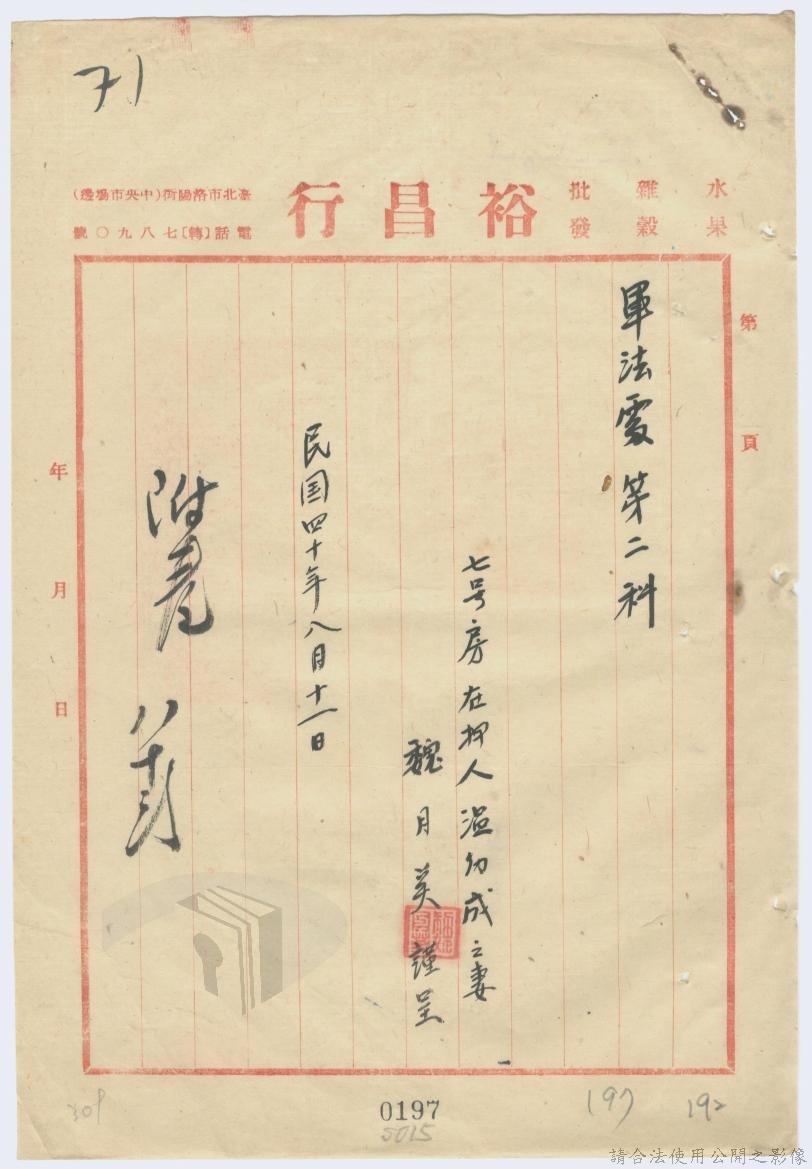 71
水果
雜穀
批發
裕昌行
臺北市洛陽街(中央市場邊)
電話(轉)七八九〇號
第 頁
軍法處 第二科
七号房在押人温幼成之妻
魏月美謹呈
民国四十年八月十一日
附卷
年 月 日
0197
5015
197
192
309
請合法使用公開之影像